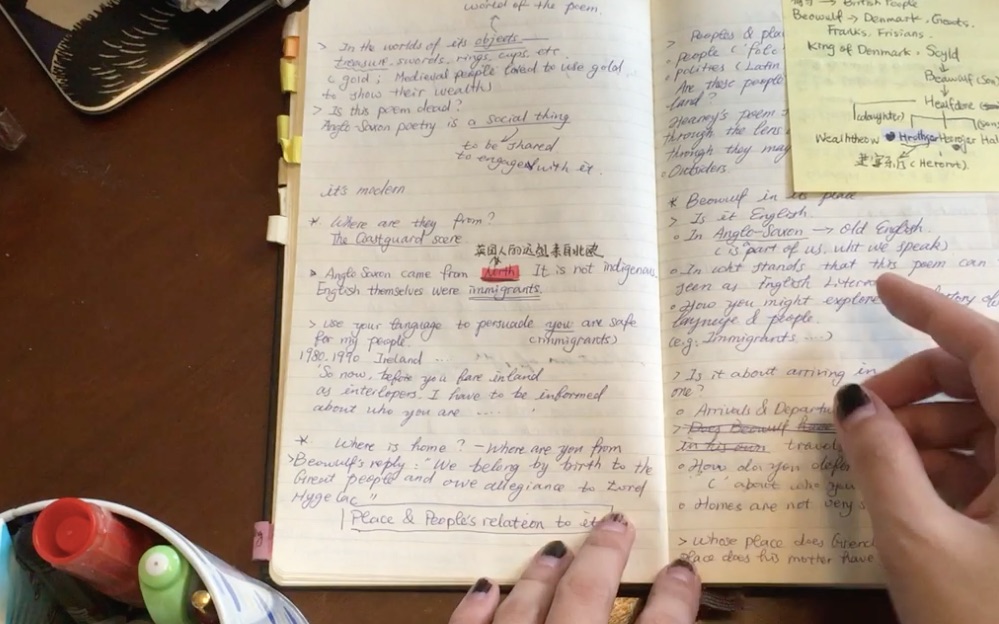 world of the poem.
> In the worlds of its objects —
treasure, swords, rings, cups, etc.
(gold; Medieval people loved to use gold
to show their wealth)
> Is this poem dead?
Anglo-Saxon poetry is a social thing
to be shared
to engage with it.
it's modern
* Where are they from?
The Coastguard scene.
英国人的远祖来自北欧
> Anglo Saxon came from North It is not indigenous
English themselves were immigrants.
> use your language to persuade you are safe
for my people. (immigrants)
1980.1990 Ireland ...
'So now, before you fare inland
as interlopers. I have to be informed
about who you are ..... '
* Where is home? - Where are you from
> Beowulf's reply: "We belong by birth to the
Great people and owe allegiance to Lord
Hygelac"
Place & People's relation to it
> Peoples & pla
people (folc
polities (Latin
Are these people
land?
Heaney's poem
through the lens
through they may
Outsiders.
* Beowulf in its place
> Is it English.
In Anglo-Saxon → Old English.
(is part of us. wht we speak)
In wht stands that this poem can
seen as English Litera
How you might explore history of
& people.
(e.g. Immigrants ....)
> Is it about arriving in
one?
Arrivals & Departu
> Does Beowulf have
in his own travel
How do you defen
( about who you
Homes are not very s
> whose place does Grend
place does his mother have
→ British People
Beowulf → Denmark. Geats.
Franks. Frisians.
King of Denmark. Scyld
Beowulf (son
Healfdene
(daughter) (son
Wealhtheow Hrothgar Heroger Hal
(Heorot).